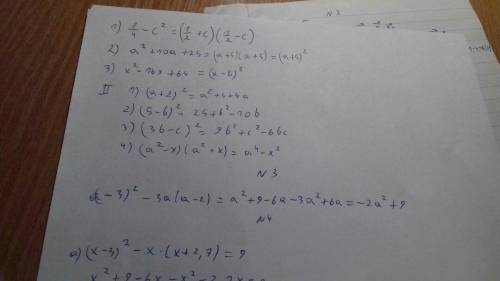 N3
1) 1/4 - c² = (1/2 + c)(1/2 - c)
2) a² + 10a + 25 = (a+5)(a+5) = (a+5)²
3) x² - 16x + 64 = (x - 8)²
II 1) (a+2)² = a² + 4 + 4a
2) (5-b)² = 25 + b² - 10b
3) (3b-c)² = 9b² + c² - 6bc
4) (a²-x)(a²+x) = a⁴ - x²
N3
(a-3)² - 3a(a-2) = a² + 9 - 6a - 3a² + 6a = -2a² + 9
N4
а) (x-3)² - x·(x+2,7) = 9
x² + 9 - 6x - x² - 2,7x = 9